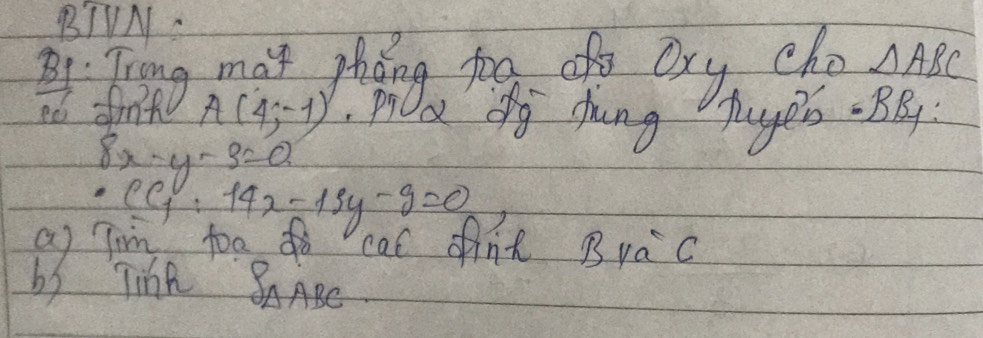 BTVN:
B1: Trong mặt phẳng tọa độ Oxy cho ΔABC
có đỉnh A(4;-1). PT 2 đg trung tuyến • BB1:
8x-y-3=0
• CC1: 14x-13y-9=0
a) Tìm tọa độ các đỉnh B và C
b) Tính SΔABC.